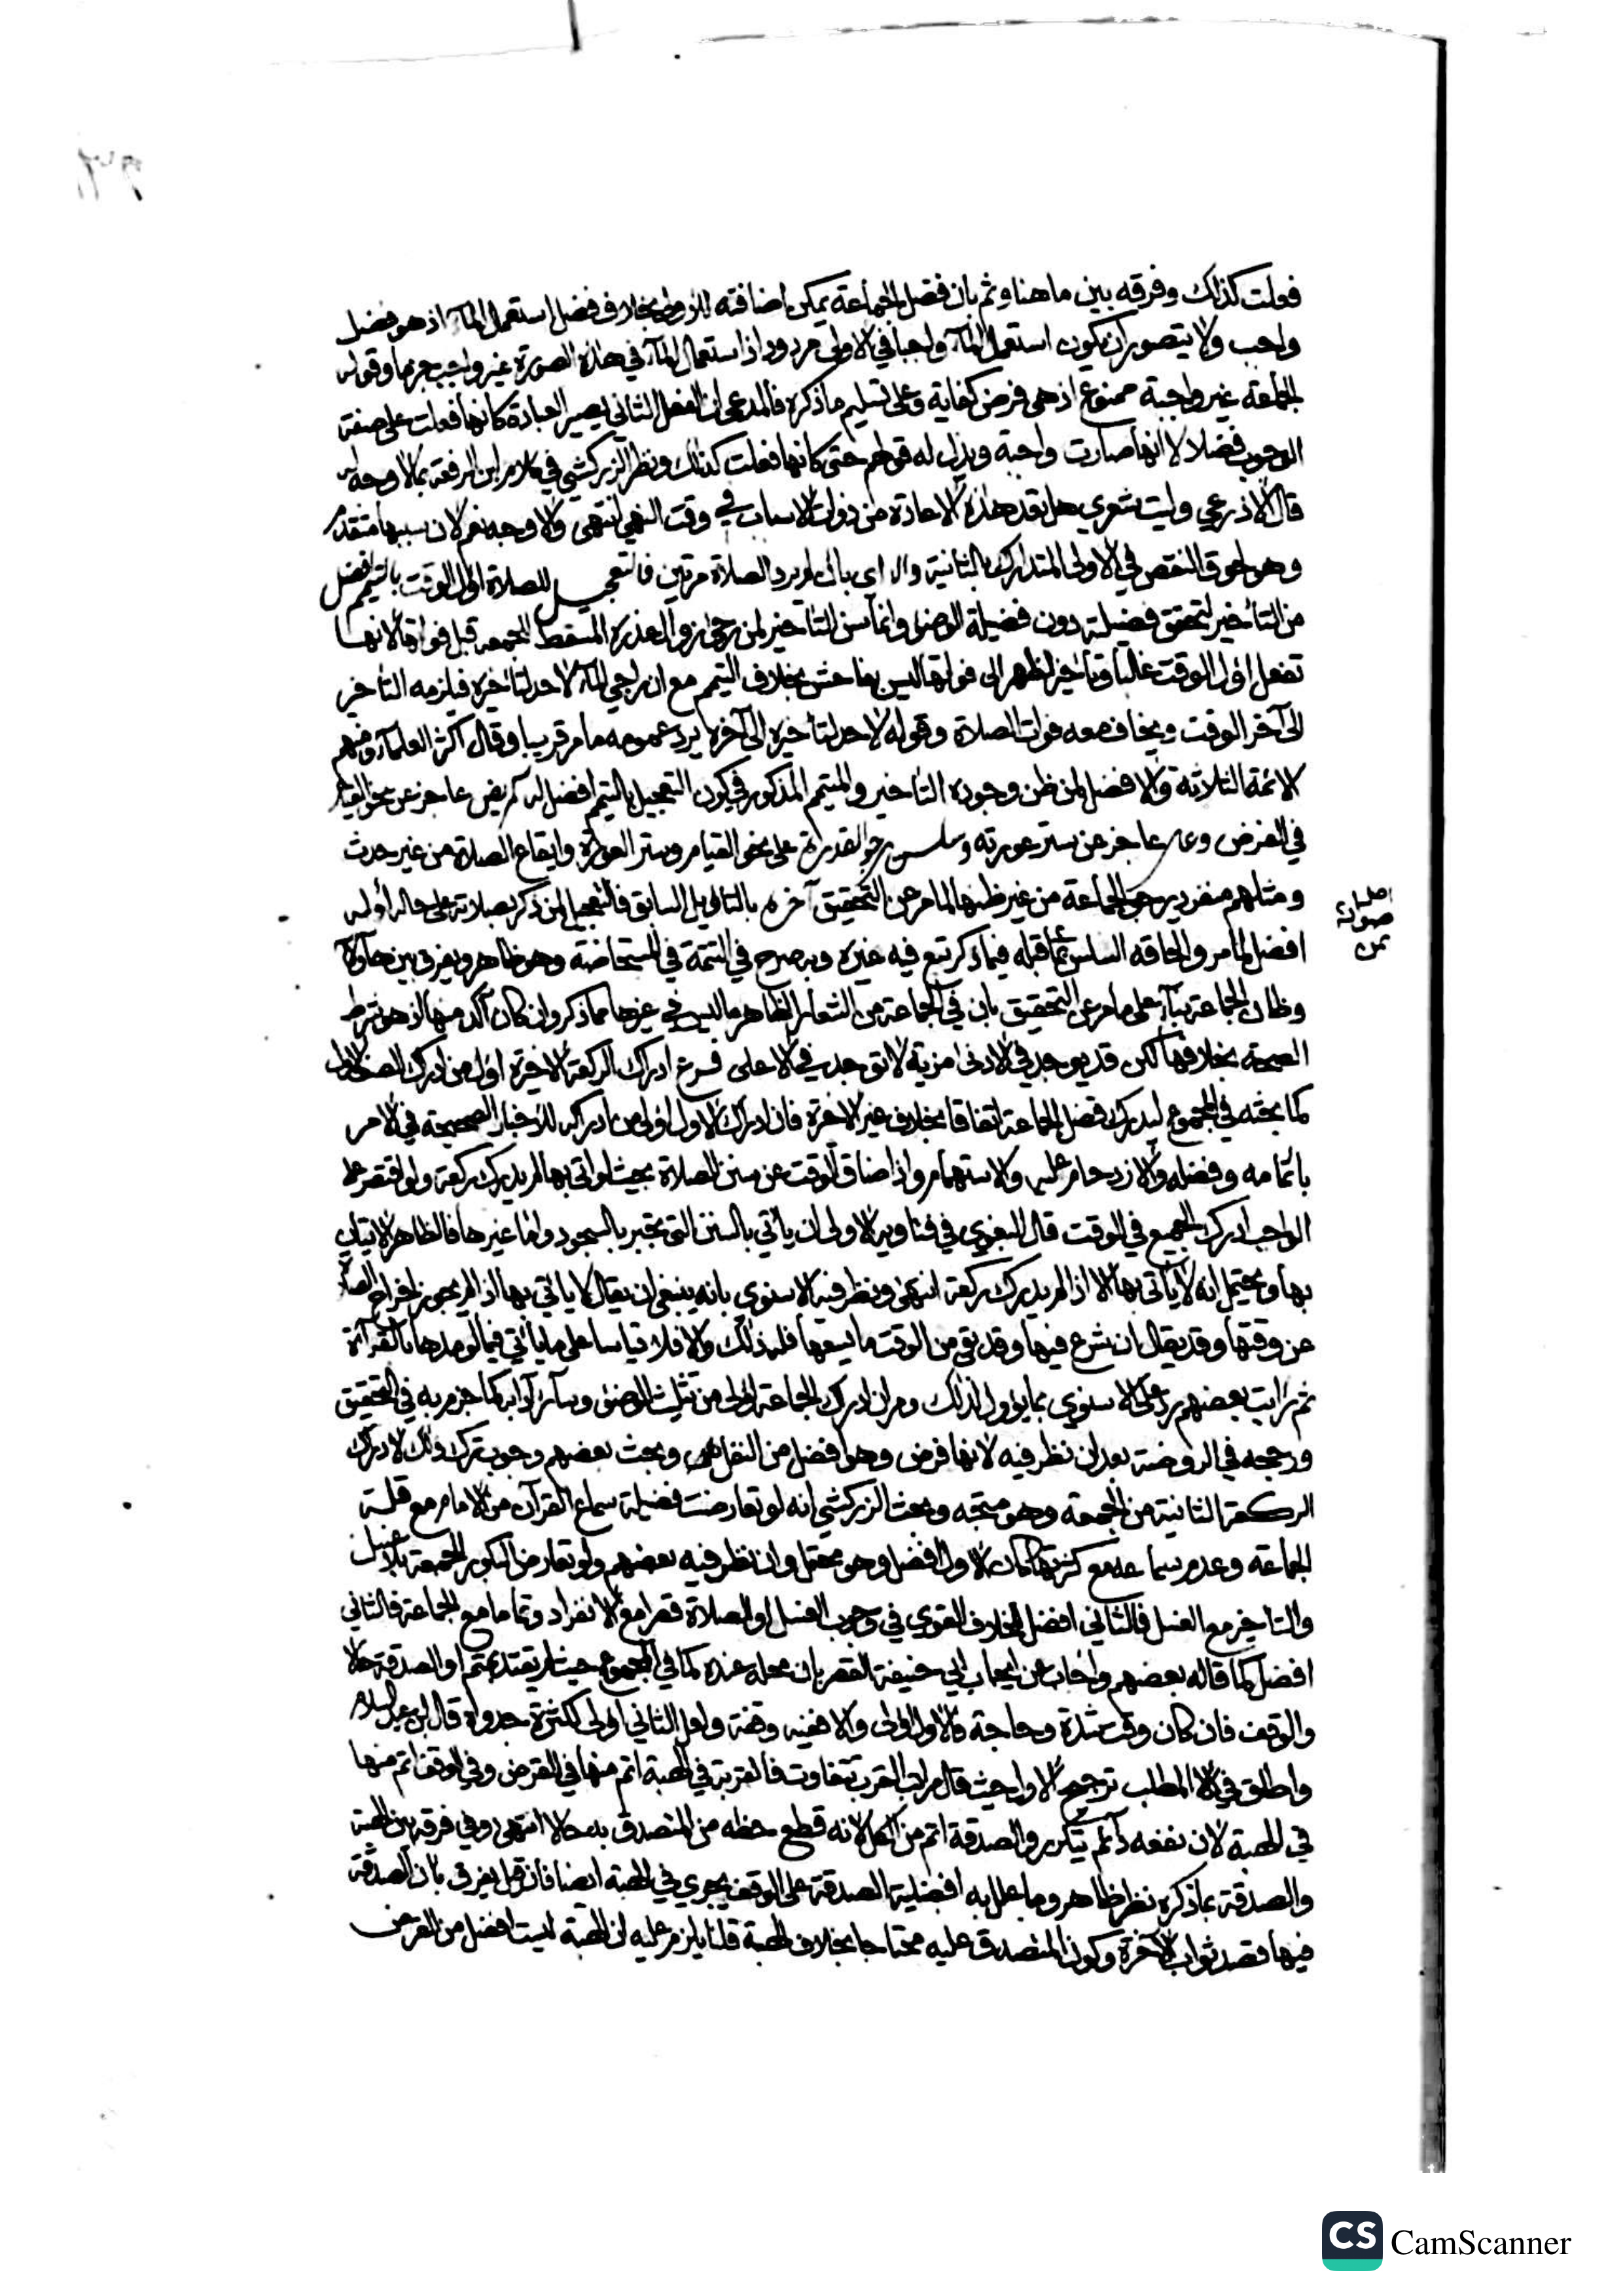 فعلت كذلك وفرقه بين ما هنا وثم بان فضل الجماعة يمكن اضافته للاولى بخلاف فضل استعمال المآء اذ هو فضل
واجب ولا يتصور ان يكون استعمال المآء واجبا في الاولى مردود اذ استعمال المآء في هذه الصورة غير واجب جزما وقوله
الجماعة غير واجبة ممنوع اذ هي فرض كفاية وعلى تسليم ما ذكره فالمدعى ان الفعل الثاني يصير العبادة كانها فعلت على صفة
الوجوب فضلا لا انها صارت واجبة ويدل له قولهم حتى كانها فعلت كذلك ونظر الزركشي في كلام ابن الرفعة بما لا وجه له
قال الاذرعي وليت شعري هل تعد هذه الاعادة من ذوات الاسباب في وقت النهي انتهى والاوجه نعم لان سببها متقدم
وهو لحوق النقص في الاولى المتدارك بالثانية والا اي بان لم يرد الصلاة مرتين فالتعجيل للصلاة اول الوقت بالتيمم افضل
من التاخير لتحقق فضيلته دون فضيلة الوضوء وانما سن التاخير لمن رجى زوال عذره المسقط للجمعة قبل فواتها لانها
تفعل اول الوقت غالبا وتاخير الظهر الى فواتها ليس بفاحش بخلاف التيمم مع ان راجي المآء لا حد لتاخره فيلزمه التاخر
الى آخر الوقت ويخاف معه فوات الصلاة وقوله لا حد لتاخيره الى آخره يرد عمومه ما مر قريبا وقال اكثر العلمآء ومنهم
الائمة الثلاثة والافضل لمن ظن وجوده التاخير والمتيمم المذكور في كون التعجيل بالتيمم افضل له كمريض عاجز عن نحو القيام
في الفرض وعار عاجز عن ستر عورته وسلس رجو القدرة على نحو القيام وستر العورة وايقاع الصلاة من غير حدث
ومثلهم منفرد يرجو الجماعة من غير ظنها لما مر عن التحقيق آخره بالتاويل السابق فالتعجيل لمن ذكر بصلاته على حاله اوله
افضل لما مر والحاقه السلس بما قبله فيما ذكر تبع فيه غيره وبه صرح في التتمة في المستحاضة وهو ظاهر ويفرق بين هاؤلآ
وظان الجماعة بنآء على ما مر عن التحقيق بان في الجماعة من الشعار الظاهر ما ليس في غيرها مما ذكر وان كان آكد منها اذ هو شرط
الصحة بخلافها لكن قد يوجد في الادنى مزية لا توجد في الاعلى فرع ادراك الركعة الاخيرة اولى من ادراك الصف الاول
كما بحثه في المجموع ليدرك فضل الجماعة اتفاقا بخلاف غير الاخرة فان ادراك الاول اولى من ادراكه للاخبار الصحيحة في الامر
باتمامه وفضله والازدحام عليه والاستهام واذا ضاق الوقت عن سنن الصلاة بحيث لو اتى بها لم يدرك ركعة ولو اقتصر على
الواجب ادرك الجميع في الوقت قال البغوي في فتاويه الاولى ان ياتي بالسنن التي تجبر بالسجود واما غيرها فالظاهر الاتيان
بها ويحتمل انه لا ياتي بها الا اذا لم يدرك ركعة انتهى ونظر فيه الاسنوي بانه ينبغي ان يقال لا ياتي بها اذا لم يجوز اخراج الصلاة
عن وقتها وقد يقال ان شرع فيها وقد بقي من الوقت ما يسعها فله ذلك والا فلا قياسا على ما ياتي فيما لو مدها بالقرآءة
ثم رايت بعضهم رد على الاسنوي بما يؤول لذلك ومر ان ادراك الجماعة اولى من تثليث الوضوء وسآئر آدابه كما جزم به في التحقيق
ورجحه في الروضة بعد ان نظر فيه لانها فرض وهو افضل من النفل وبحث بعضهم وجوب ترك ذلك لادراك
الركعة الثانية من الجمعة وهو متجه وبحث الزركشي انه لو تعارضت فضيلة سماع القرآن من الامام مع قلة
الجماعة وعدم سماعه مع كثرتها كان الاول افضل وهو محتمل وان نظر فيه بعضهم ولو تعارض البكور للجمعة بلا غسل
والتاخير مع الغسل فالثاني افضل للخلاف القوي في وجوب الغسل او الصلاة قصرا مع الانفراد وتماما مع الجماعة فالثاني
افضل كما قاله بعضهم واجاب عن ايجاب ابي حنيفة القصر بان محله عنده كما في المجموع حيث لم يقتد بمتم او الصدقة حالا
والوقف فان كان وقت شدة وحاجة فالاول اولى والا ففيه وقفة ولعل الثاني اولى لكثرة جدواه قال ابن عبد السلام
واطلق في المطلب ترجيح الاول حيث قال مراتب القرب تتفاوت فالقربة في الهبة اتم منها في القرض وفي الوقف اتم منها
في الهبة لان نفعه دآئم يتكرر والصدقة اتم من الكل لانه قطع حظه من المتصدق به حالا انتهى وفي فرقه بين الهبة
والصدقة بما ذكره نظر ظاهر وما علل به افضلية الصدقة على الوقف يجري في الهبة ايضا فان قيل يفرق بان الصدقة
فيها قصد ثواب الآخرة وكون المتصدق عليه محتاجا بخلاف الهبة قلنا يلزم عليه ان الهبة ليست افضل من القرض
اصل
صوابه
من
CS CamScanner